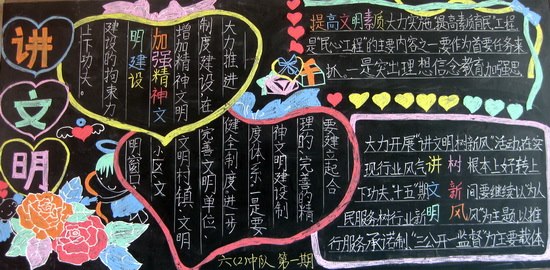 讲
文
明
大力推进
制度建设,在
增加精神文明
加强精神文
明建设
建设的拘束力
上下功夫。
提高文明素质 大力实施"提高素质育民"工程,
是"民心工程"的主要内容之一,要作为首要任务来
抓。一是突出理想信念教育,加强思
要建立起合
理的、完善的精
神文明建设制
度体系;一是要
健全制度、进一步
完善文明单位、
文明村镇、文明
小区、文
明窗口
大力开展"讲文明树新风"活动,在实
现行业风气讲树根本上好转上
下功夫。"十五"期文新间要继续以为人
民服务树行业新明风风为主题,以推
行服务承诺制"三公开一监督"为主要载体
六(2)中队 第一期